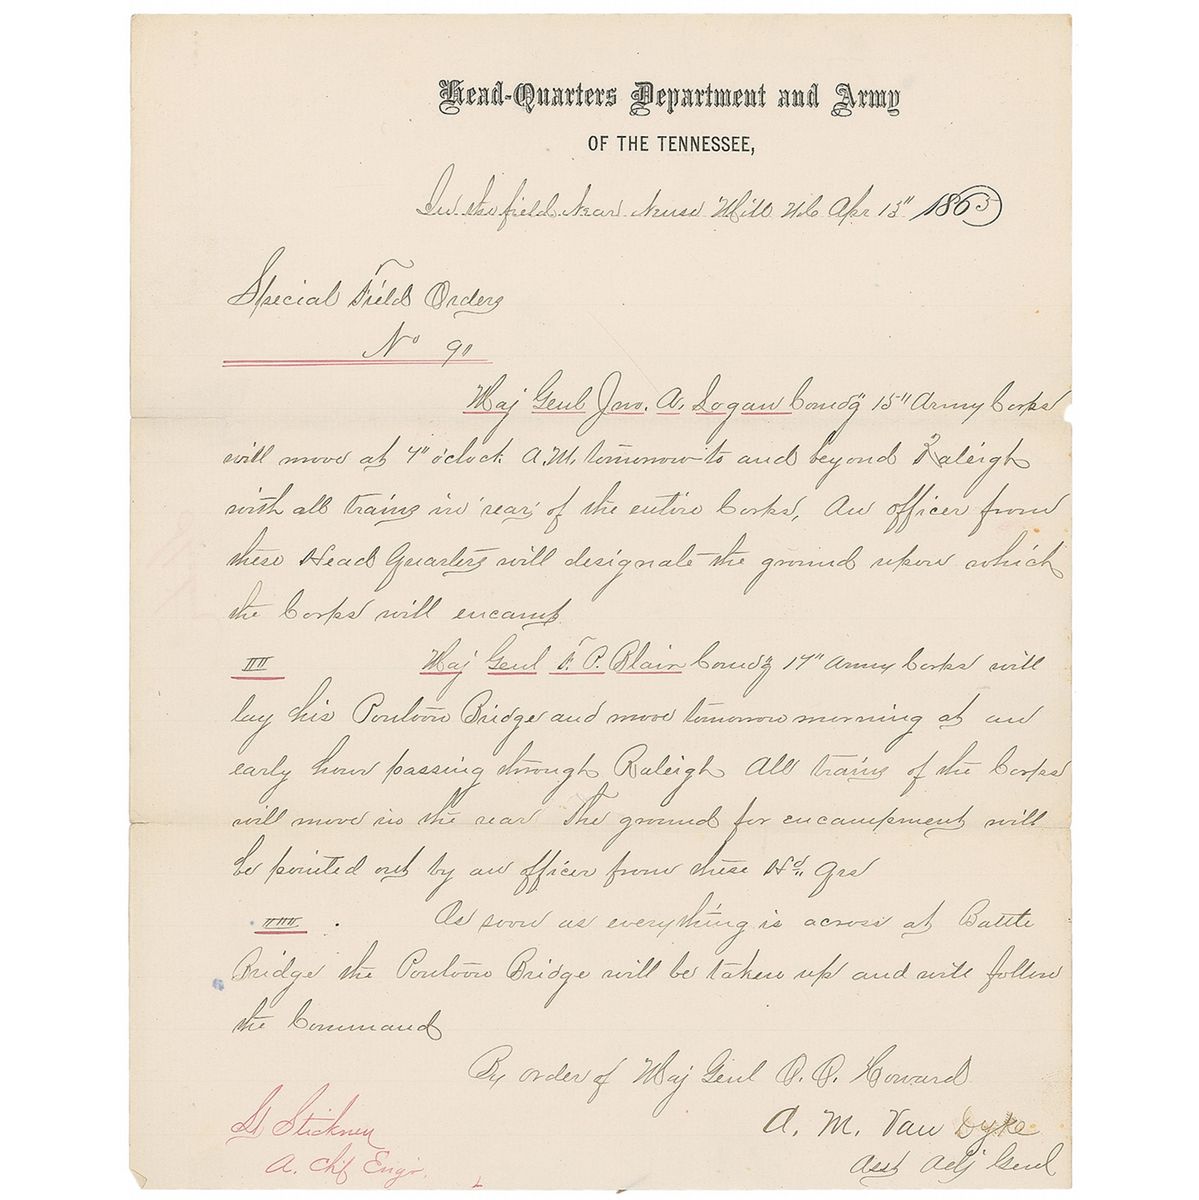 Head-Quarters Department and Army
OF THE TENNESSEE,
In the field Near Neuse Mill N.C. Apr 13" 1865
Special Field Orders
No 91
Maj Genl Jno. A. Logan Comdg 15" Army Corps
will move at 4" o'clock A.M. tomorrow to and beyond Raleigh
with all trains in rear of the entire Corps, An officer from
these Head Quarters will designate the ground upon which
the Corps will encamp
II Maj Genl F. P. Blair Comdg 17" Army Corps will
lay his Pontoon Bridge and move tomorrow morning at an
early hour passing through Raleigh All trains of the Corps
will move in the rear The ground for encampment will
be pointed out by an officer from these Hd Qrs
III. As soon as everything is across at Battle
Bridge the Pontoon Bridge will be taken up and will follow
the Command
By order of Maj Genl O. O. Howard
A. M. Van Dyke
Asst Adj Genl
Lt Stickney
A. Chf Engr.